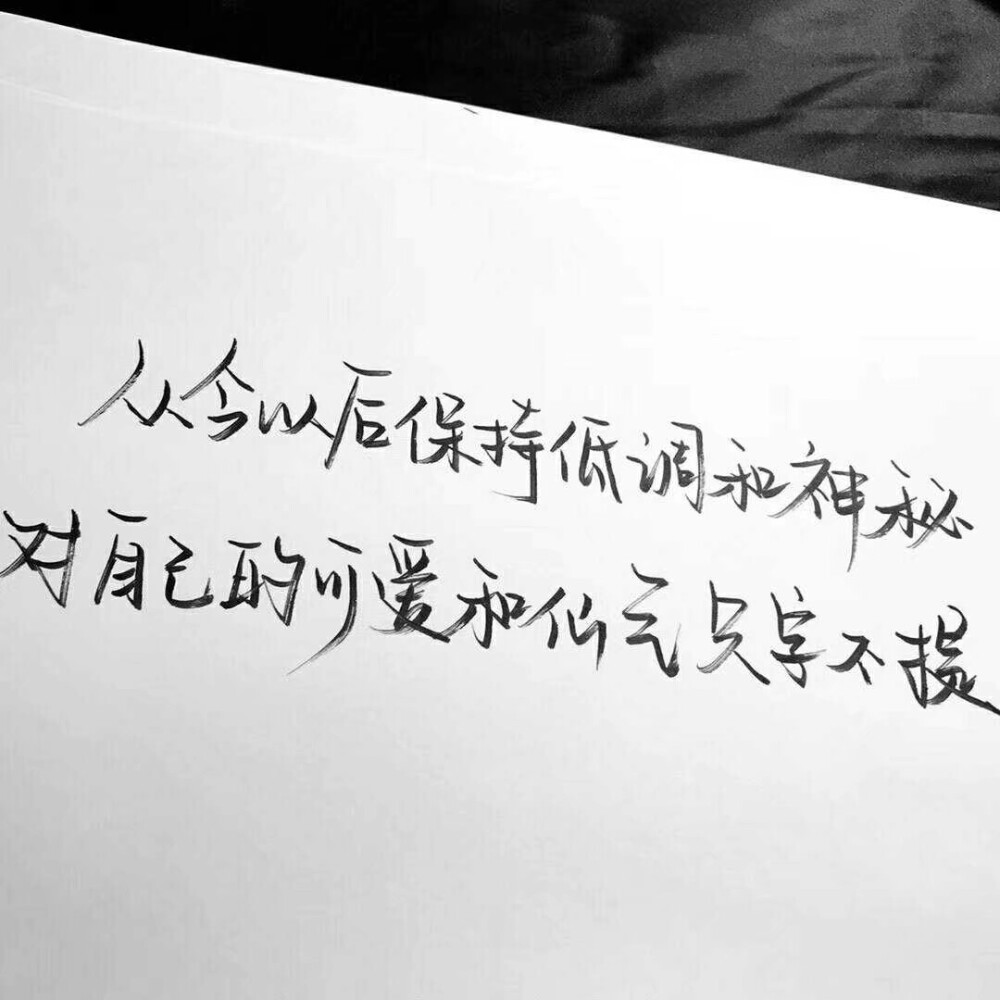 从今以后保持低调和神秘
对自己的可爱和仙气只字不提